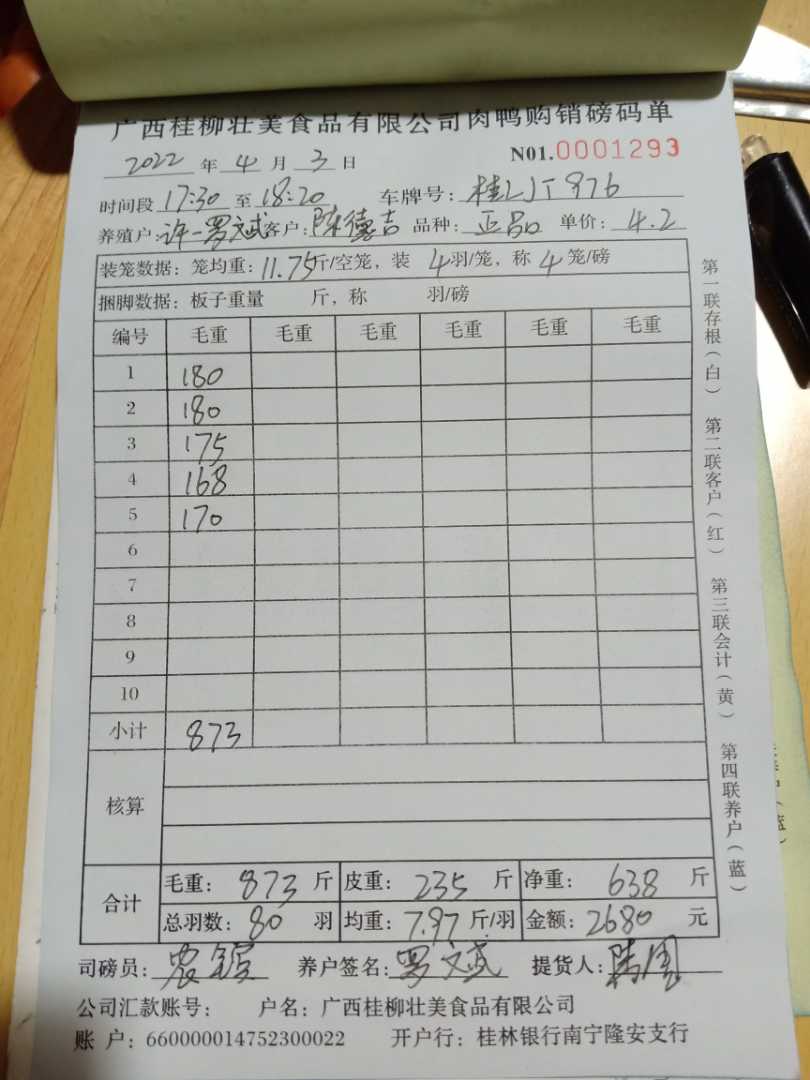 广西桂柳壮美食品有限公司肉鸭购销磅码单
2022 年 4 月 3 日 N01.0001293
时间段 17:30 至 18:20 车牌号: 桂LJT876
养殖户: 许一罗文斌 客户: 陈德吉 品种: 正品 单价: 4.2
装笼数据: 笼均重: 11.75斤/空笼, 装 4羽/笼, 称 4 笼/磅
捆脚数据: 板子重量 斤, 称 羽/磅
编号 毛重 毛重 毛重 毛重 毛重 毛重
1 180
2 180
3 175
4 168
5 170
6
7
8
9
10
小计 873
核算
合计 毛重: 873 斤 皮重: 235 斤 净重: 638 斤
总羽数: 80 羽 均重: 7.97 斤/羽 金额: 2680 元
司磅员: 养户签名: 罗文斌 提货人:
公司汇款账号: 户名: 广西桂柳壮美食品有限公司
账 户: 660000014752300022 开户行: 桂林银行南宁隆安支行
第一联存根(白) 第二联客户(红) 第三联会计(黄) 第四联养户(蓝)